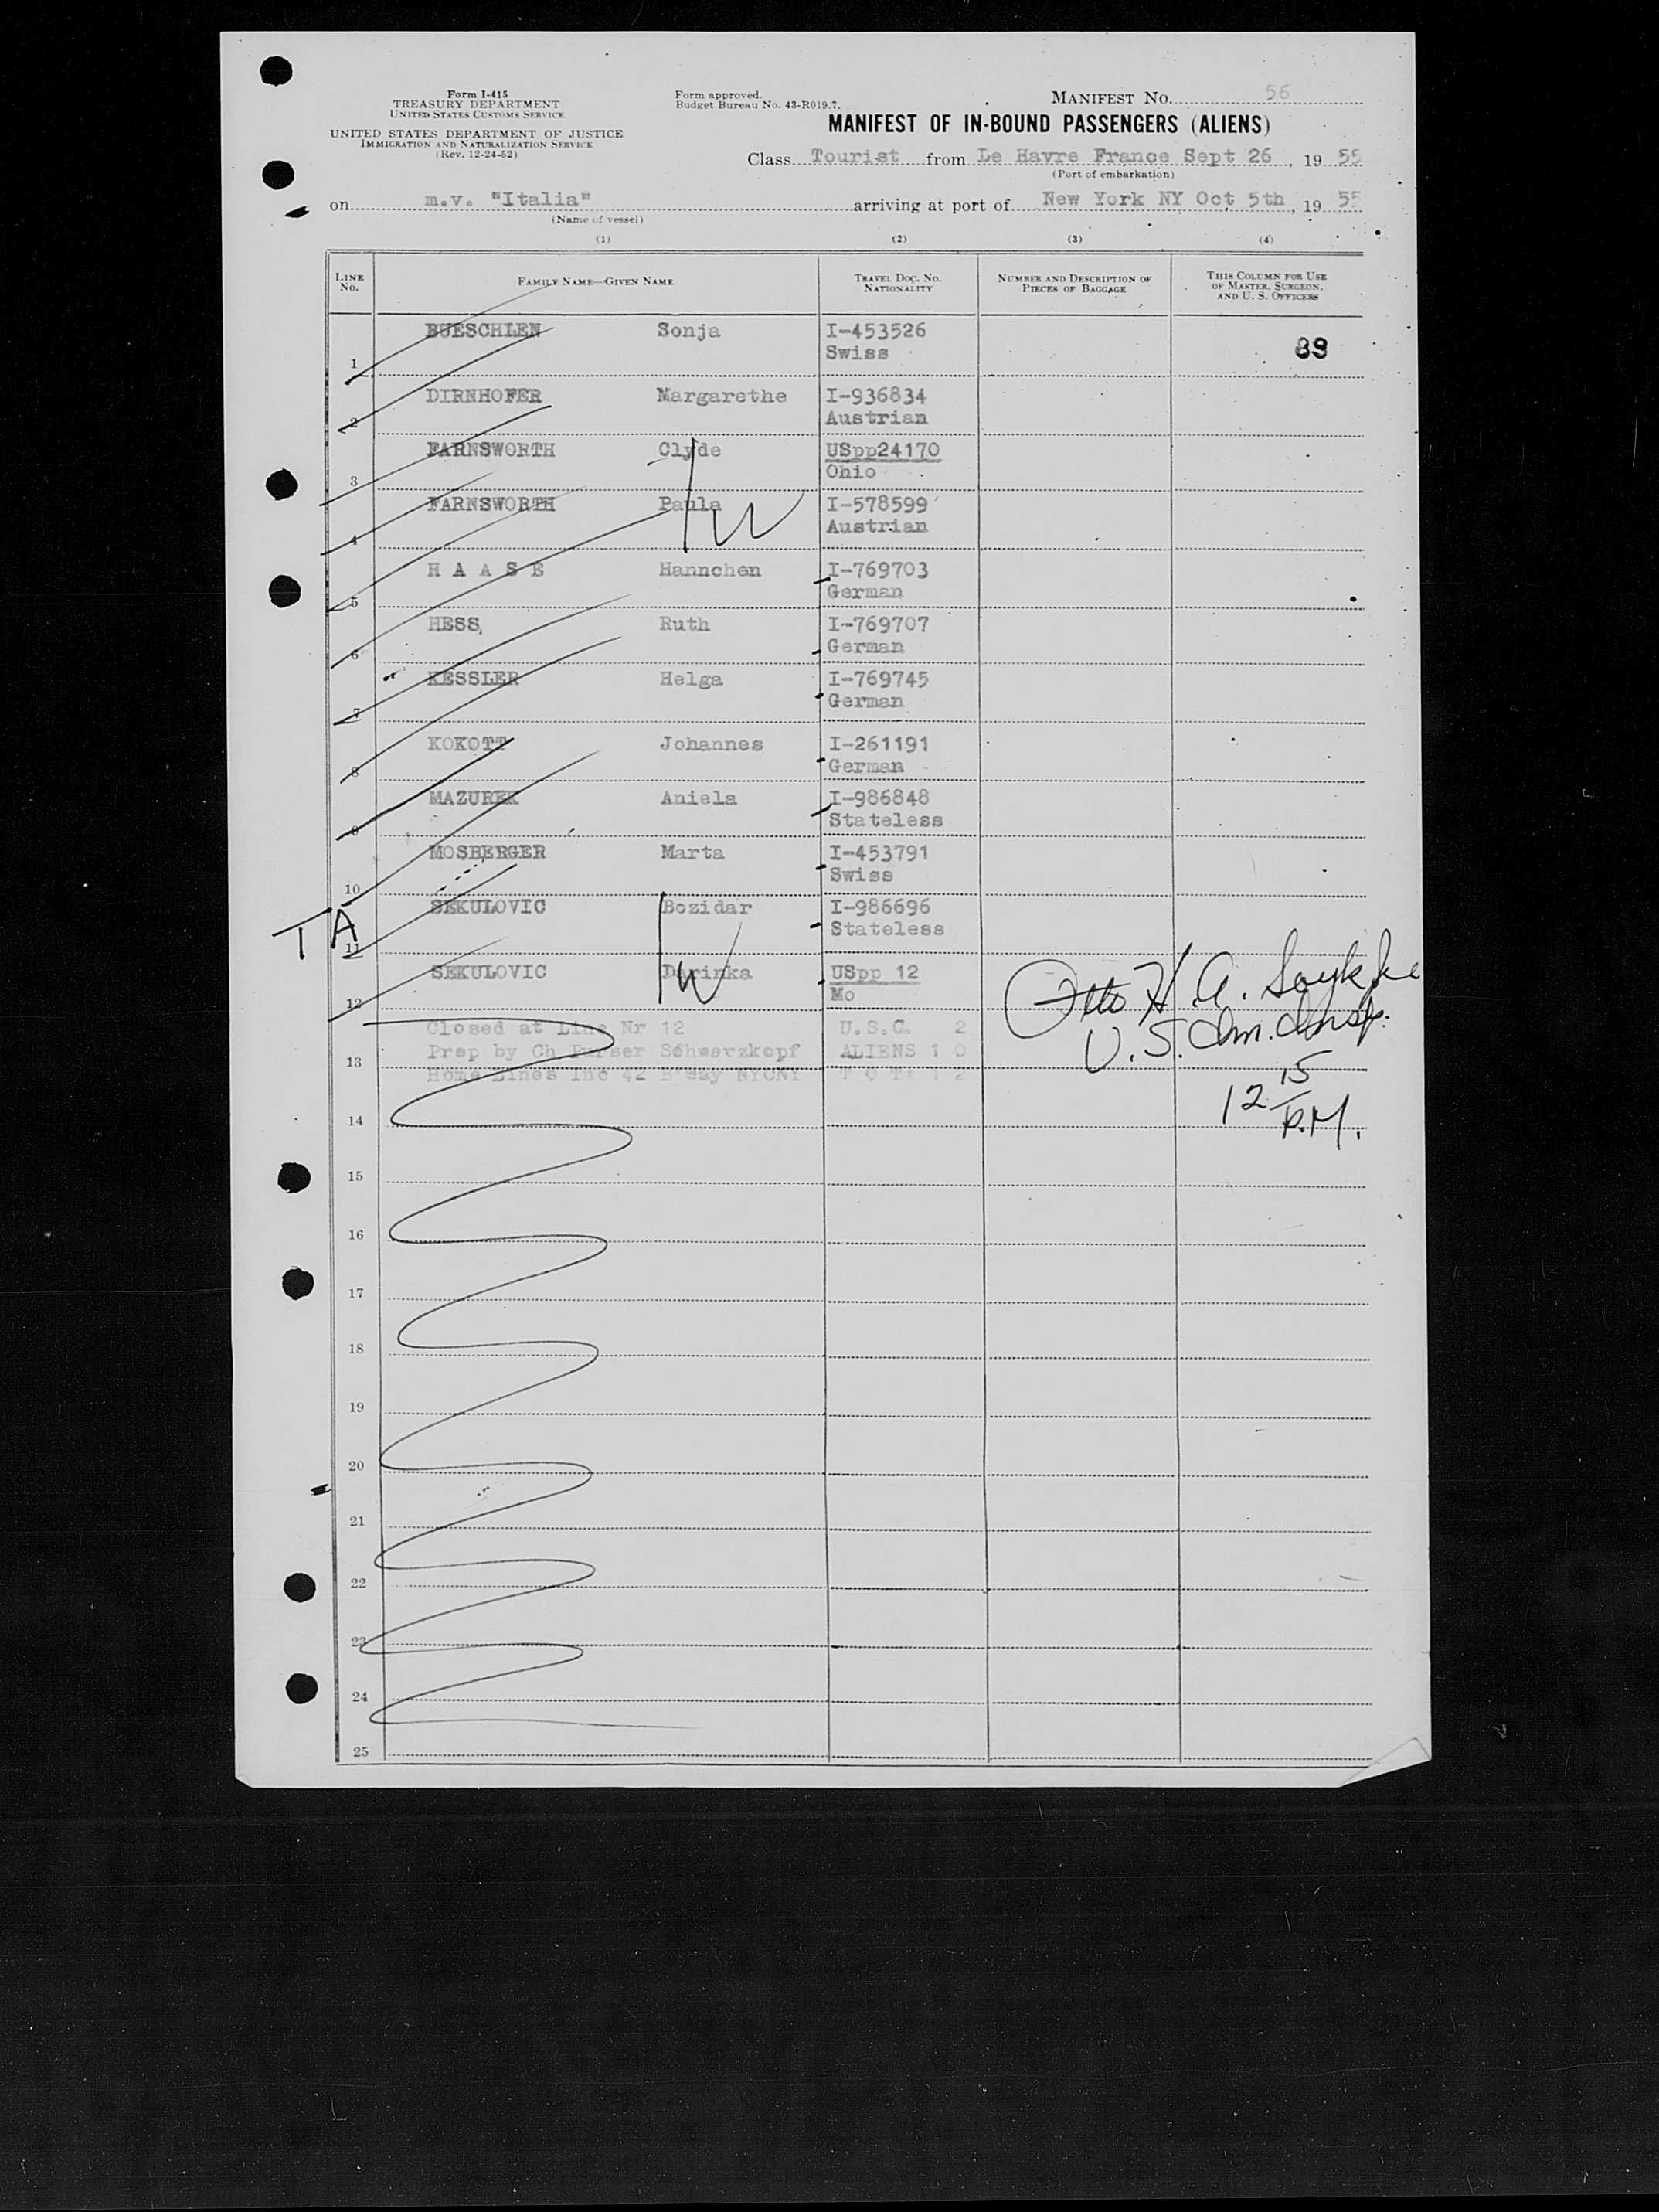 Form I-415
TREASURY DEPARTMENT
UNITED STATES CUSTOMS SERVICE
UNITED STATES DEPARTMENT OF JUSTICE
IMMIGRATION AND NATURALIZATION SERVICE
(Rev. 12-24-52)
Form approved.
Budget Bureau No. 43-R019.7.
MANIFEST NO. 56
MANIFEST OF IN-BOUND PASSENGERS (ALIENS)
Class Tourist from Le Havre France Sept 26, 19 55
(Port of embarkation)
on m.v. "Italia" arriving at port of New York NY Oct 5th, 19 55
(Name of vessel)
(1) (2) (3) (4)
LINE NO. FAMILY NAME—GIVEN NAME TRAVEL DOC. NO. NATIONALITY NUMBER AND DESCRIPTION OF PIECES OF BAGGAGE THIS COLUMN FOR USE OF MASTER, SURGEON, AND U. S. OFFICERS
BUESCHLEN Sonja I-453526
1 Swiss 89
DIRNHOFER Margarethe I-936834
2 Austrian
FARNSWORTH Clyde USpp24170
3 Ohio
FARNSWORTH Paula I-578599
4 Austrian
W
H A A S E Hannchen I-769703
5 German
HESS, Ruth I-769707
6 German
KESSLER Helga I-769745
7 German
KOKOTT Johannes I-261191
8 German
MAZUREK Aniela I-986848
9 Stateless
MOSBERGER Marta I-453791
10 Swiss
SEKULOVIC Bozidar I-986696
TA 11 Stateless
SEKULOVIC Darinka USpp 12
12 Mo
W
Otto H. A.
U. S. Im. Insp.
12 15 P.M.
Closed at Line Nr 12 U.S.C. 2
Prep by Ch Purser Schwarzkopf ALIENS 1 0
13
Home Lines Inc 42 B'way NYCNY T O T: 1 2
14
15
16
17
18
19
20
21
22
23
24
25